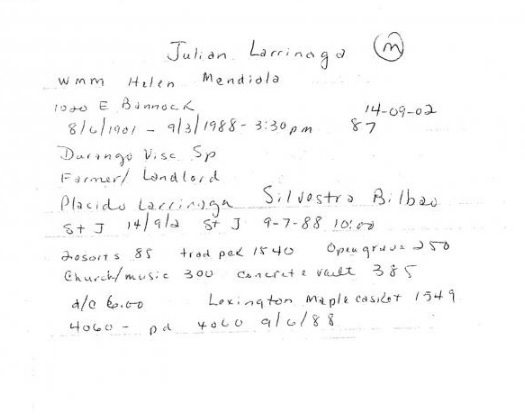 Julian Larrinaga (m)
WMM Helen Mendiola
1020 E Bannock 14-09-02
8/6/1901 - 9/3/1988 - 3:30pm 87
Durango Visc Sp
Farmer/ Landlord
Placido Larrinaga Silvestra Bilbao
St J 14/9/2 St J 9-7-88 10:00
85 trad pak 1540 Open grave 250
Church/music 300 concrete vault 385
d/c 6.00 Lexington Maple casket 1549
4060 - pd 4060 9/6/88